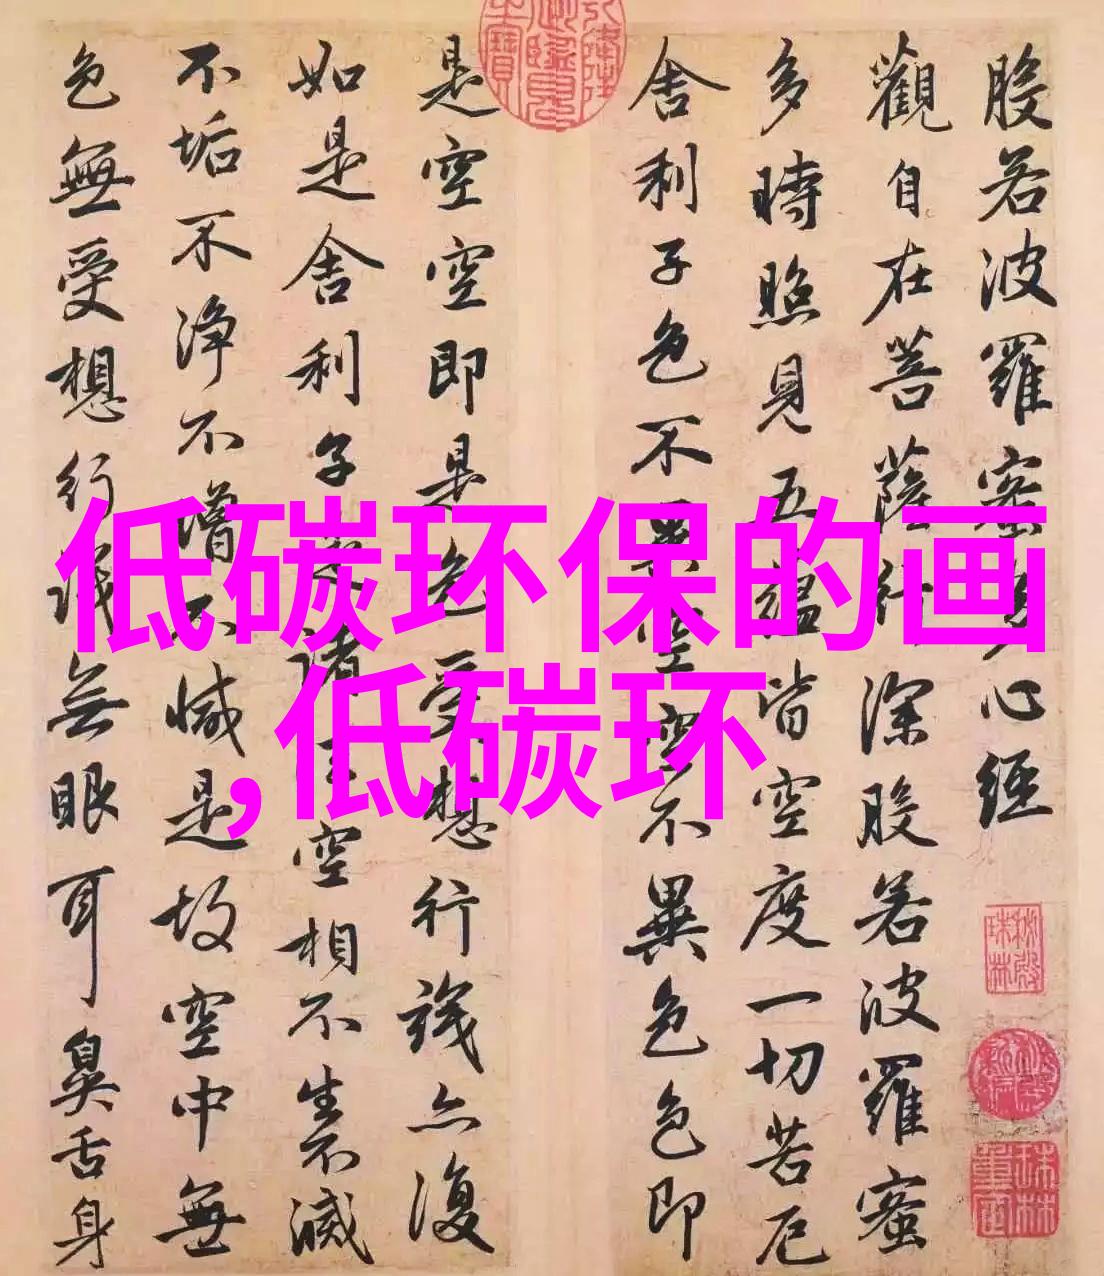 般若波羅蜜多心經
觀自在菩薩行深般若波羅蜜
多時照見五蘊皆空度一切苦厄
舍利子色不異空空不異色色即
是空空即是色受想行識亦復
如是舍利子是諸法空相不生不滅
不垢不淨不增不減是故空中無
色無受想行識無眼耳鼻舌身
低碳环保的画
,低碳环